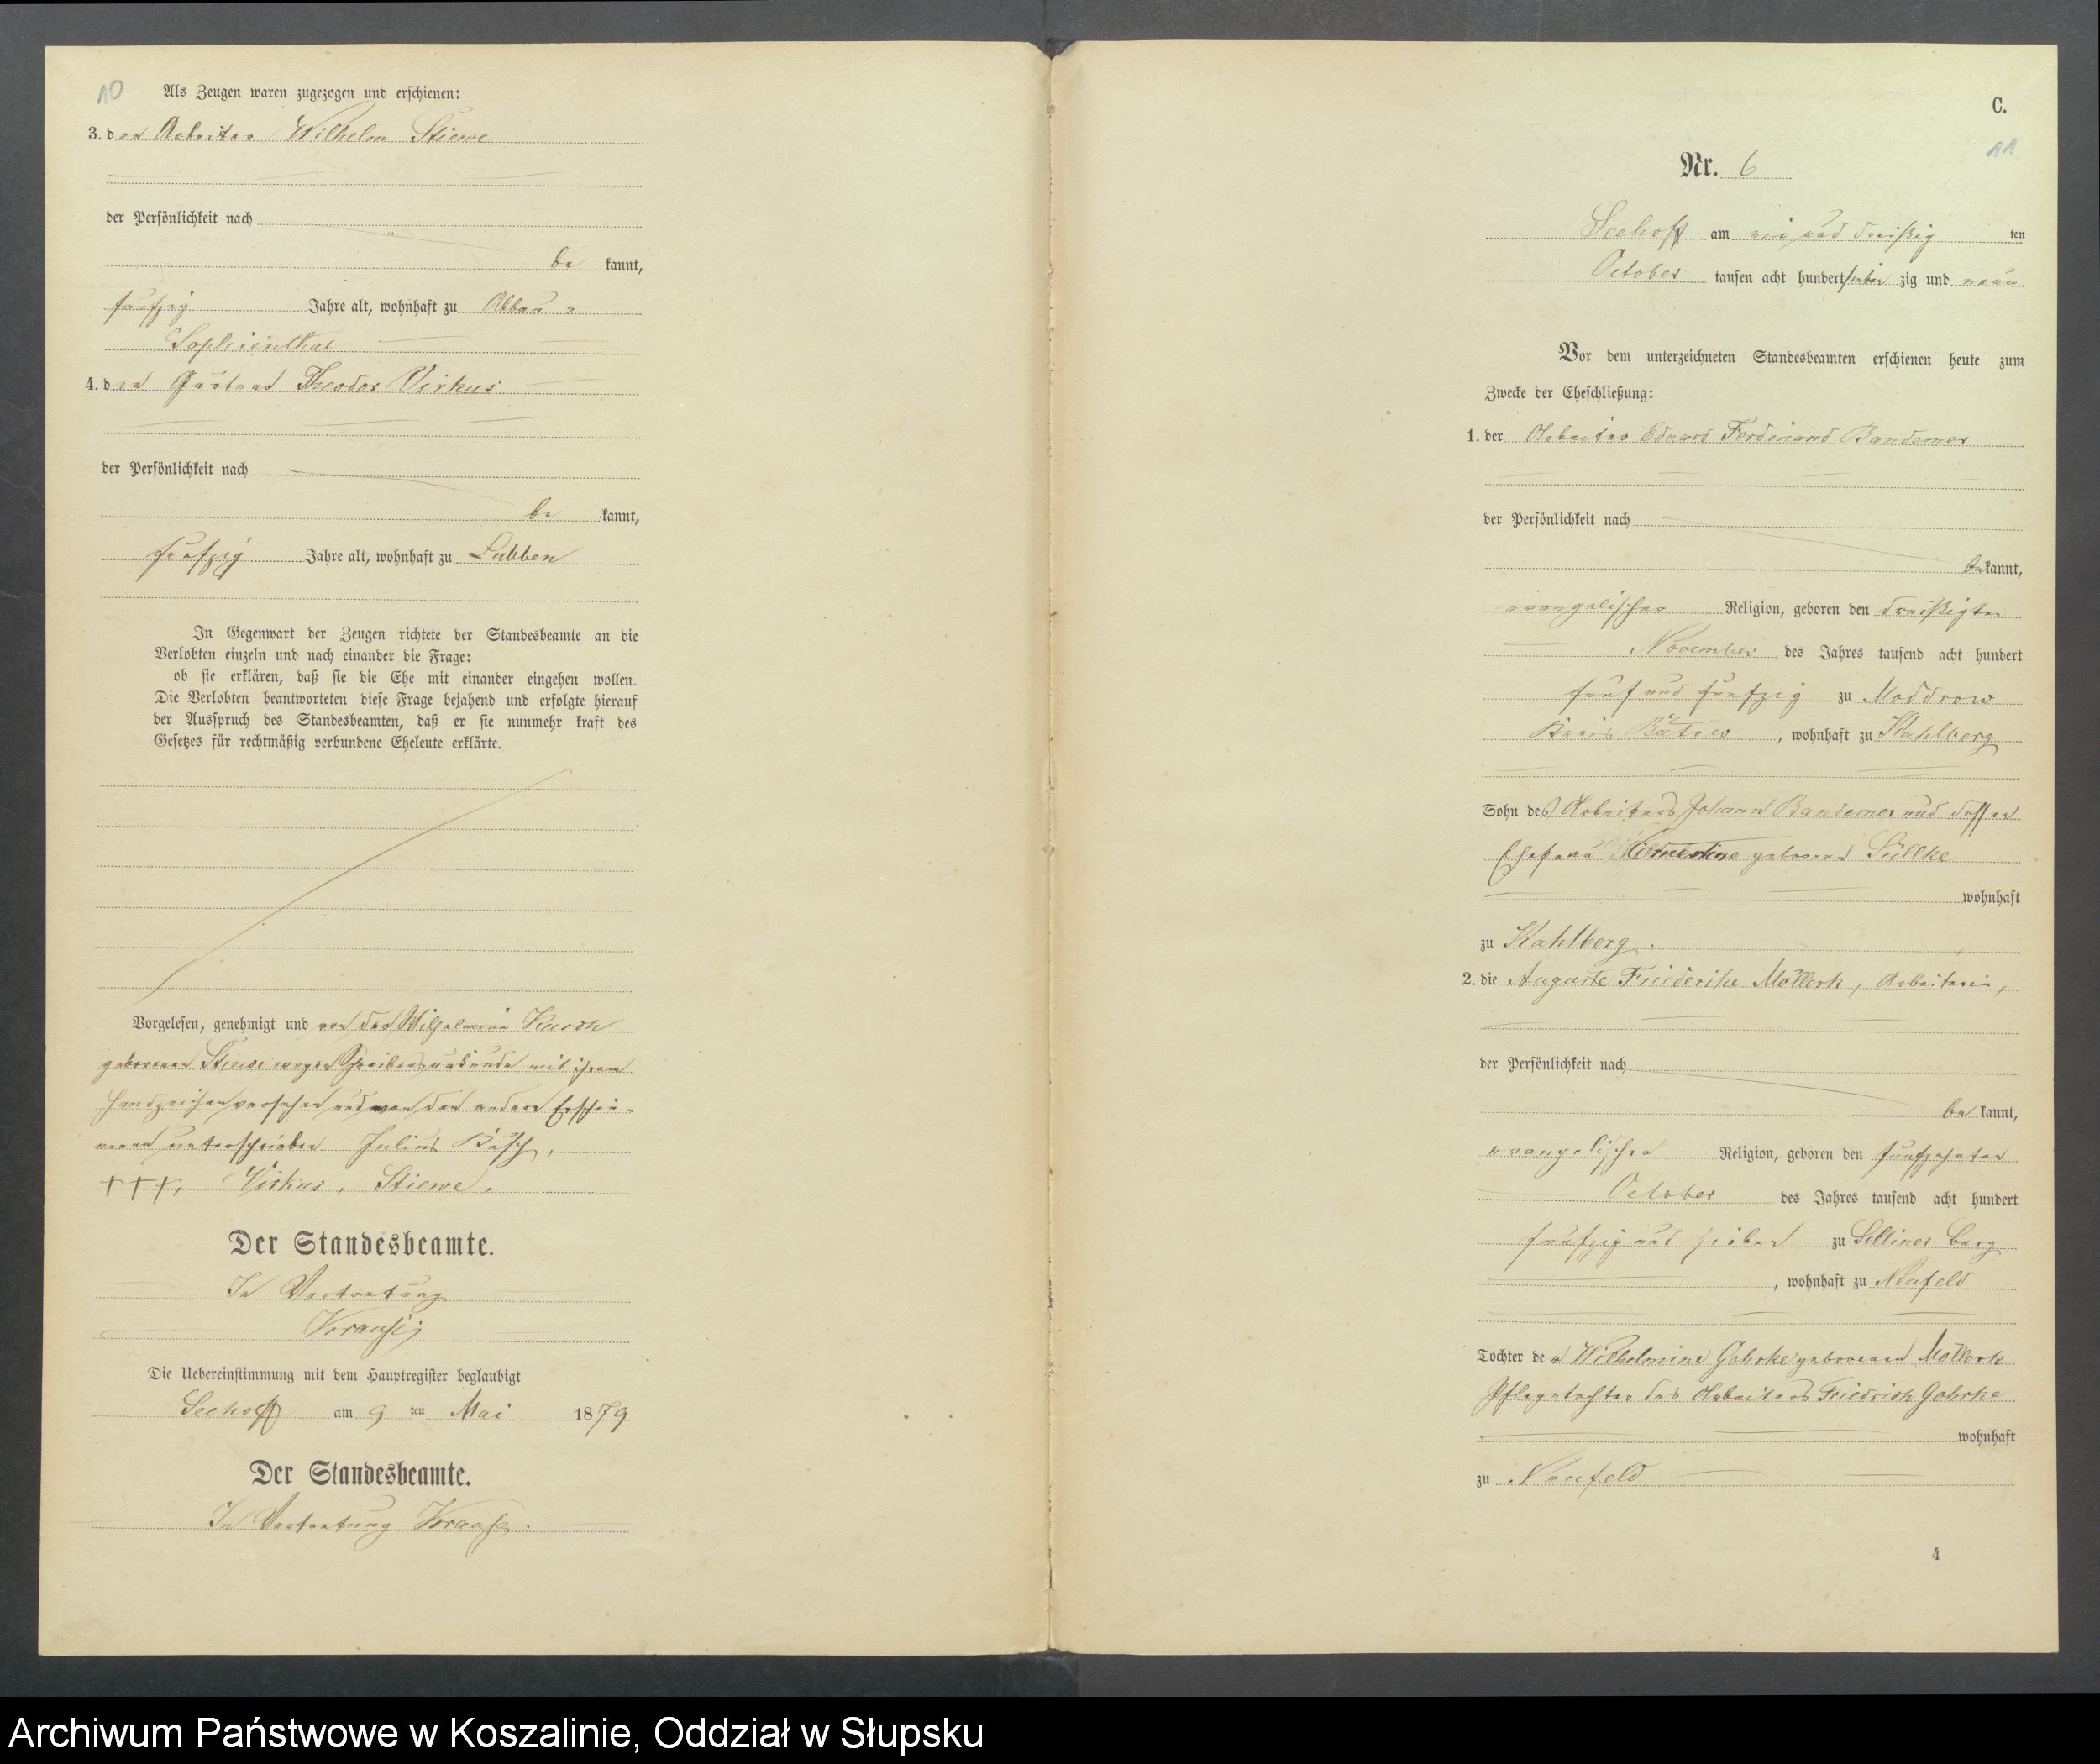 10
Als Zeugen waren zugezogen und erschienen:
3. den Arbeiter Wilhelm Stiewe
der Persönlichkeit nach
be kannt,
funfzig Jahre alt, wohnhaft zu Abbau =
Sophienthal
4. den Theodor Virkus
der Persönlichkeit nach
be kannt,
funfzig Jahre alt, wohnhaft zu Lubben
In Gegenwart der Zeugen richtete der Standesbeamte an die
Verlobten einzeln und nach einander die Frage:
ob sie erklären, daß sie die Ehe mit einander eingehen wollen.
Die Verlobten beantworteten diese Frage bejahend und erfolgte hierauf
der Ausspruch des Standesbeamten, daß er sie nunmehr kraft des
Gesetzes für rechtmäßig verbundene Eheleute erklärte.
Vorgelesen, genehmigt und von der Wilhelmine
geborenen Stiewe wegen Schreibensunkunde mit ihrem
Handzeichen versehen und von den andern Erschie-
nenen unterschrieben Julius
+++, Virkus, Stiewe.
Der Standesbeamte.
In Vertretung
Krause
Die Uebereinstimmung mit dem Hauptregister beglaubigt
Seehoff am 9 ten Mai 1879
Der Standesbeamte.
In Vertretung Krause.
C.
11
Nr. 6
Seehoff am ein und dreißig ten
October tausen acht hundert sieben zig und neun
Vor dem unterzeichneten Standesbeamten erschienen heute zum
Zwecke der Eheschließung:
1. der Arbeiter Eduard Ferdinand Bandemer
der Persönlichkeit nach
bekannt,
evangelischer Religion, geboren den dreißigten
November des Jahres tausend acht hundert
funf und funfzig zu Moddrow
Kreis Bütow, wohnhaft zu Kahlberg
Sohn des Arbeiters Johann Bandemer und dessen
Ehefrau geborenen Süllke
wohnhaft
zu Kahlberg.
2. die Auguste Friederike Möllerk, Arbeiterin,
der Persönlichkeit nach
be kannt,
evangelischer Religion, geboren den funfzehnten
October des Jahres tausend acht hundert
funfzig und sieben zu Selliner Berg
, wohnhaft zu Neufeld
Tochter der Wilhelmine Gohrke geborenen Möllerk
Pflegetochter des Arbeiters Friedrich Gohrke
wohnhaft
zu Neufeld
4
Archiwum Państwowe w Koszalinie, Oddział w Słupsku